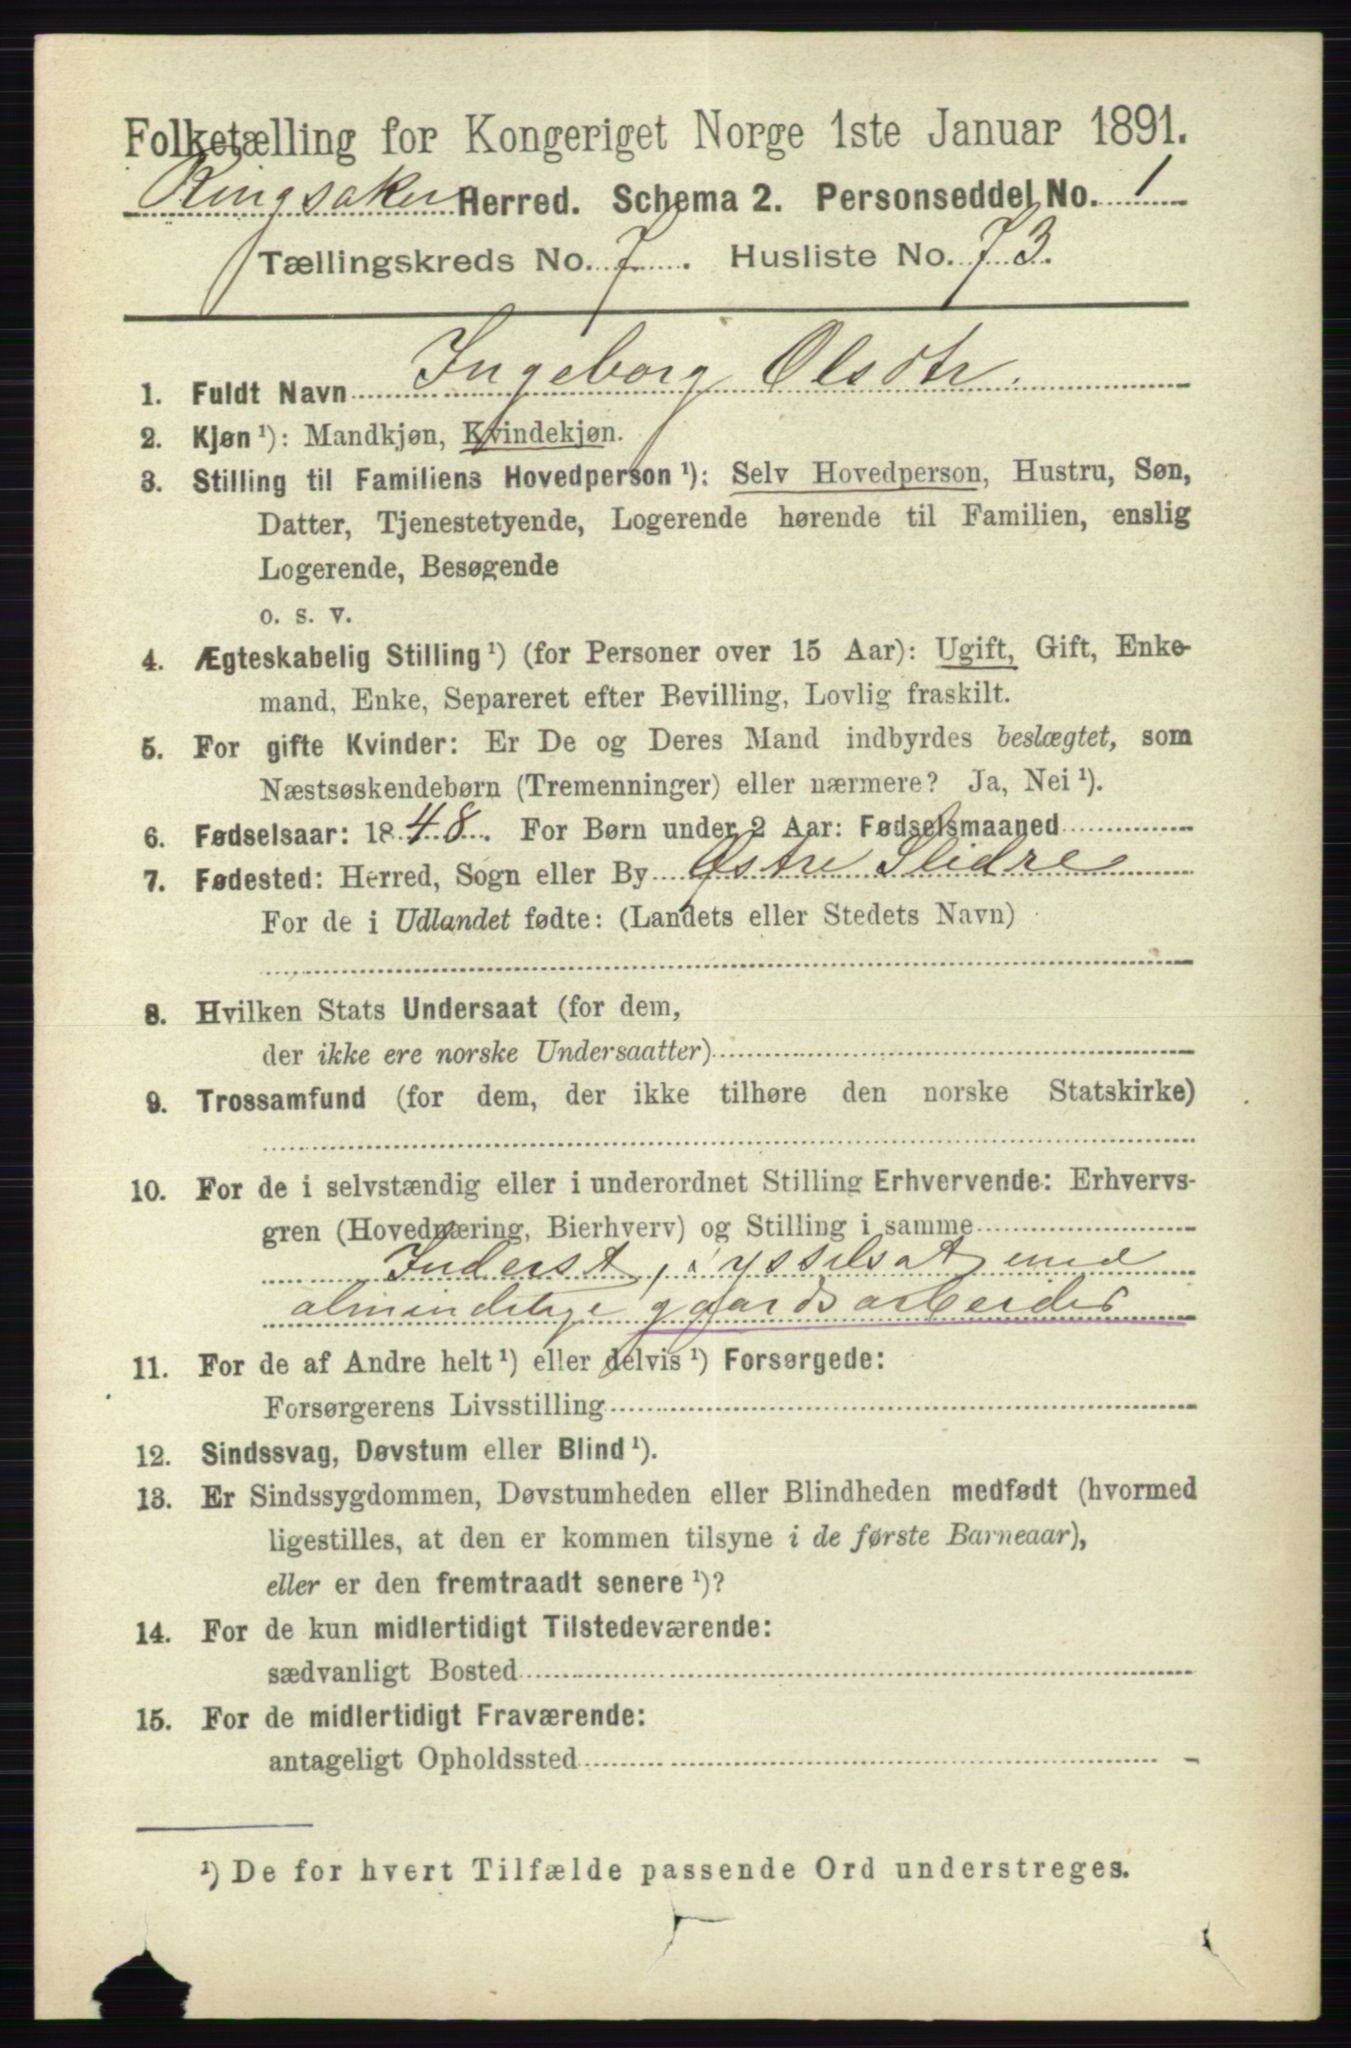 Folketælling for Kongeriget Norge 1ste Januar 1891.
Ringsaker Herred. Schema 2. Personseddel No. 1
Tællingskreds No. 7. Husliste No. 73.
1. Fuldt Navn Ingeborg Olsdtr.
2. Kjøn¹): Mandkjøn, Kvindekjøn.
3. Stilling til Familiens Hovedperson¹): Selv Hovedperson, Hustru, Søn,
Datter, Tjenestetyende, Logerende hørende til Familien, enslig
Logerende, Besøgende
o. s. v.
4. Ægteskabelig Stilling¹) (for Personer over 15 Aar): Ugift, Gift, Enke-
mand, Enke, Separeret efter Bevilling, Lovlig fraskilt.
5. For gifte Kvinder: Er De og Deres Mand indbyrdes beslægtet, som
Næstsøskendebørn (Tremenninger) eller nærmere? Ja, Nei¹).
6. Fødselsaar: 1848. For Børn under 2 Aar: Fødselsmaaned
7. Fødested: Herred, Sogn eller By Østre Slidre
For de i Udlandet fødte: (Landets eller Stedets Navn)
8. Hvilken Stats Undersaat (for dem,
der ikke ere norske Undersaatter)
9. Trossamfund (for dem, der ikke tilhøre den norske Statskirke)
10. For de i selvstændig eller i underordnet Stilling Erhvervende: Erhvervs-
gren (Hovednæring, Bierhverv) og Stilling i samme
Inderst, sysselsat med
almindelige gaardsarbeider
11. For de af Andre helt¹) eller delvis¹) Forsørgede:
Forsørgerens Livsstilling
12. Sindssvag, Døvstum eller Blind¹).
13. Er Sindssygdommen, Døvstumheden eller Blindheden medfødt (hvormed
ligestilles, at den er kommen tilsyne i de første Barneaar),
eller er den fremtraadt senere¹)?
14. For de kun midlertidigt Tilstedeværende:
sædvanligt Bosted
15. For de midlertidigt Fraværende:
antageligt Opholdssted
¹) De for hvert Tilfælde passende Ord understreges.